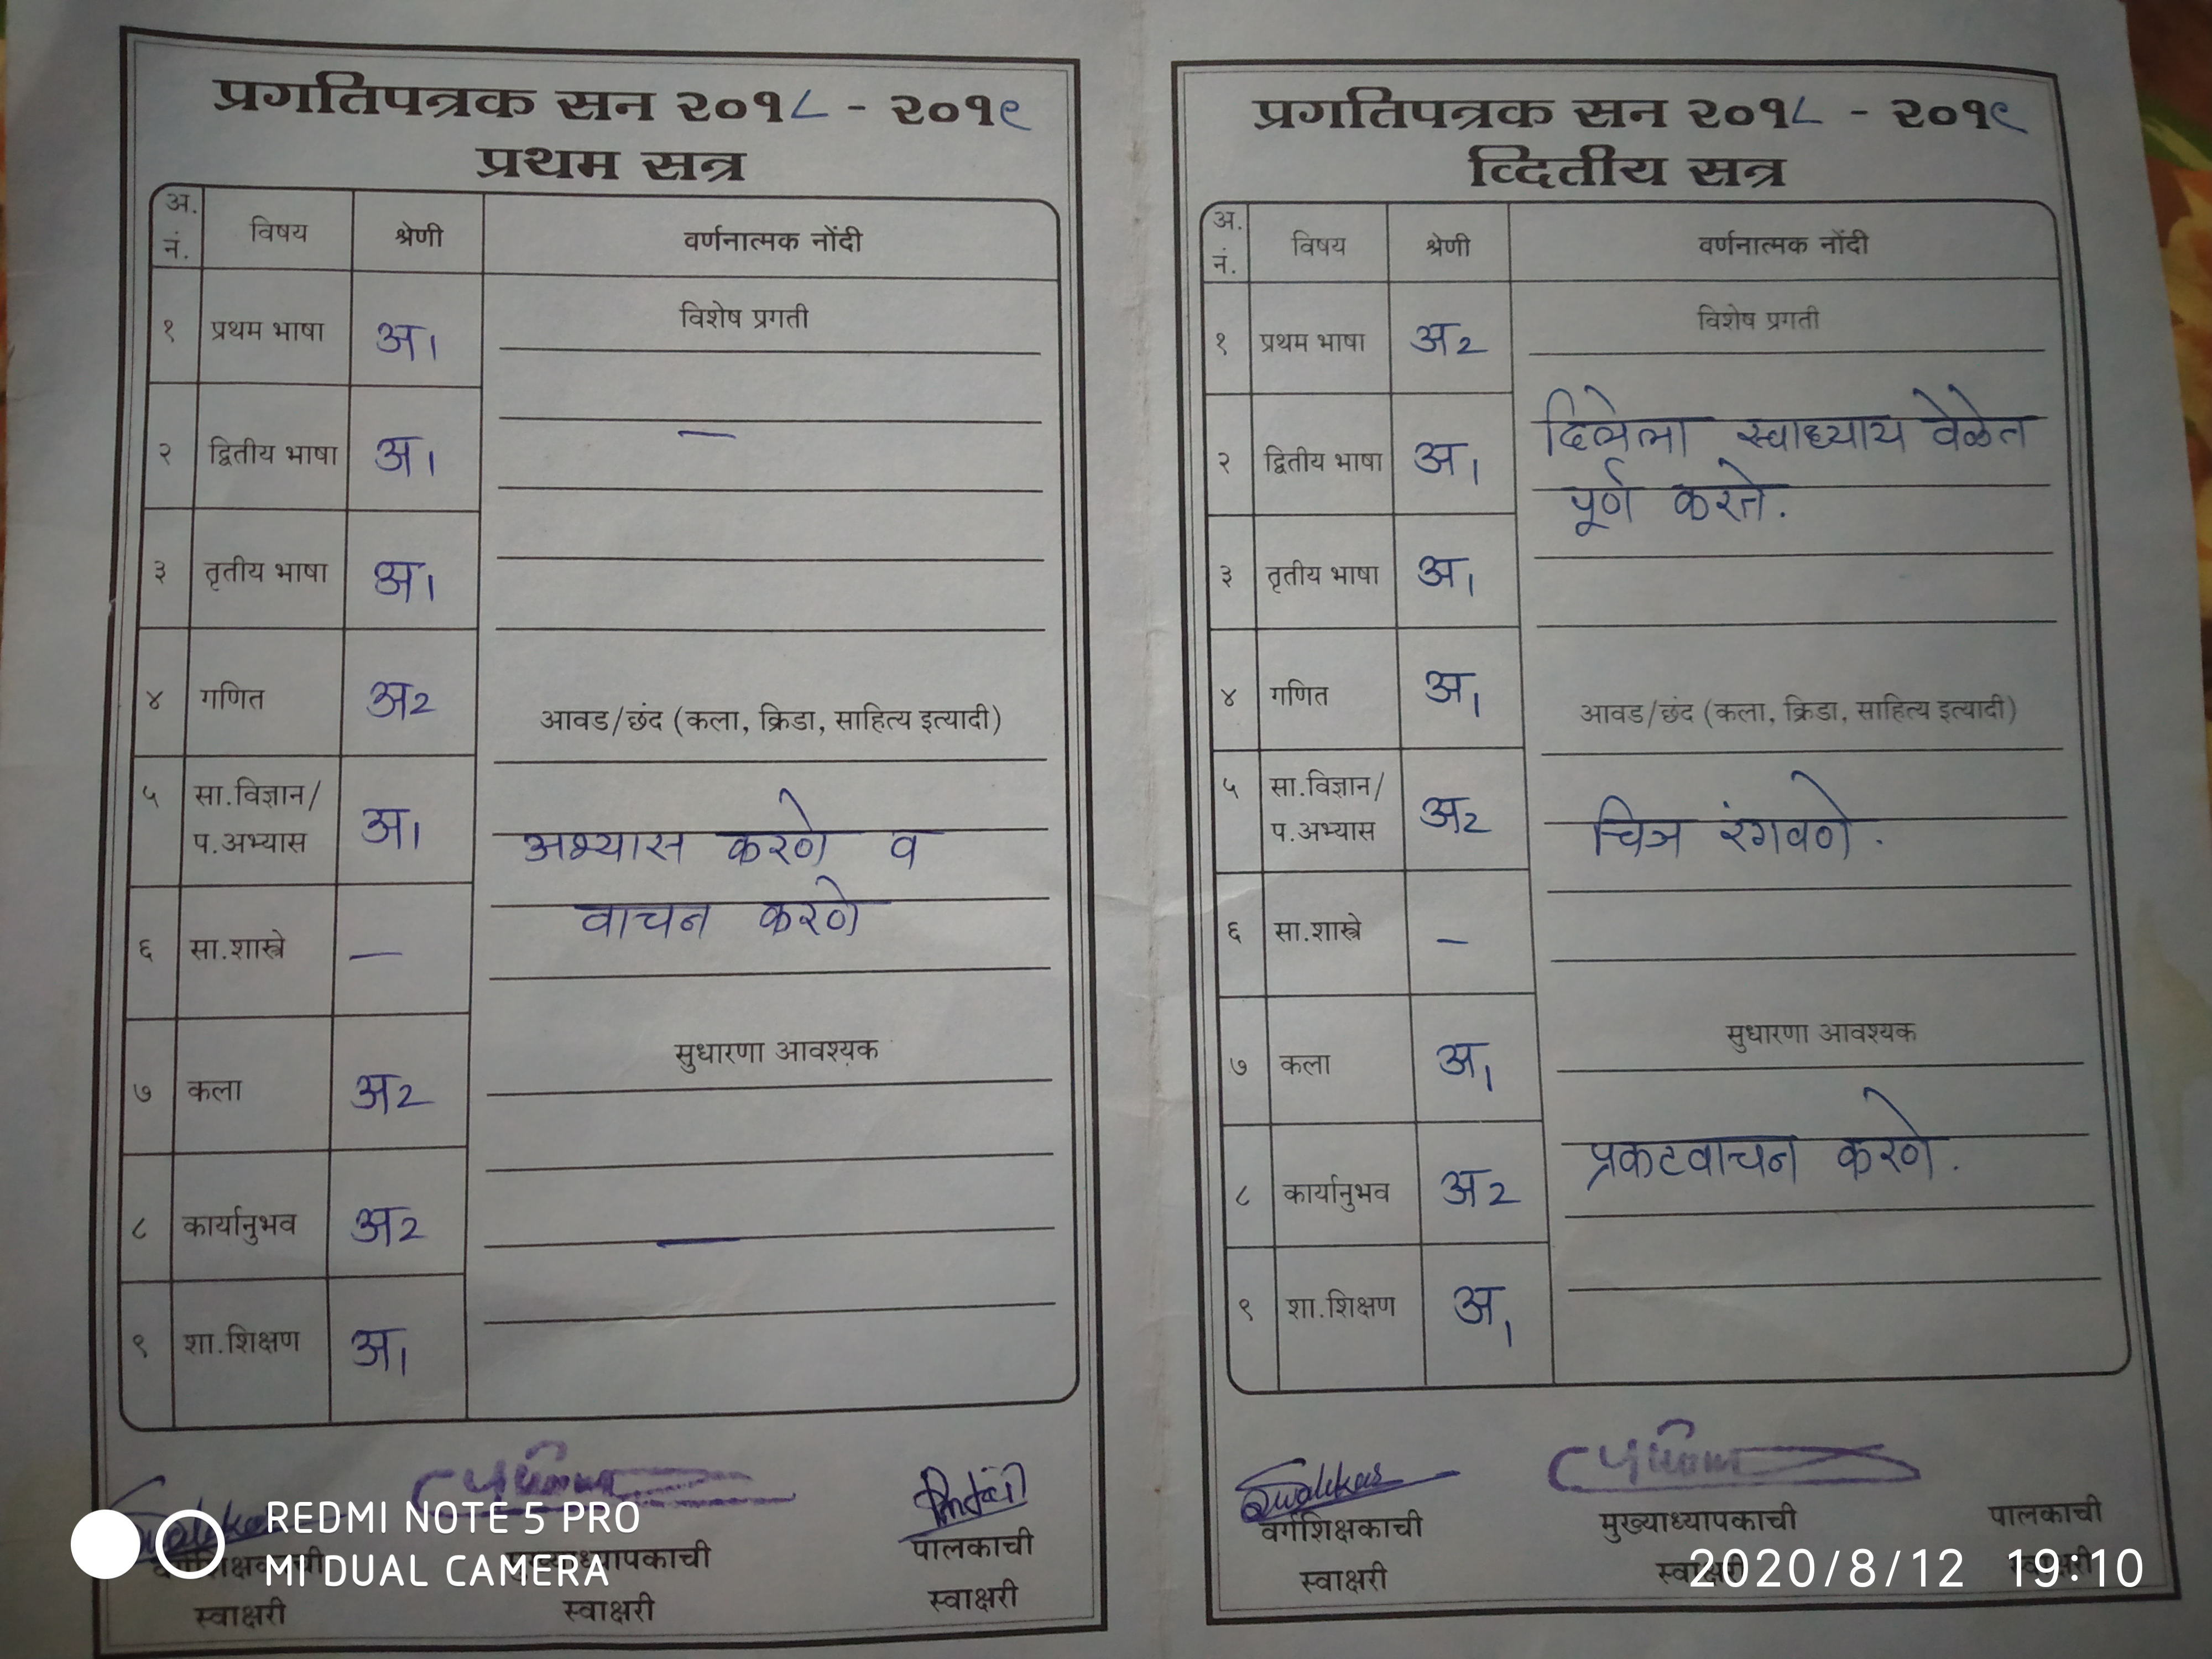 प्रगतिपत्रक सन २०१८ - २०१९
प्रथम सत्र
अ. नं. विषय श्रेणी वर्णनात्मक नोंदी
१ प्रथम भाषा अ1
विशेष प्रगती
२ द्वितीय भाषा अ1 —
३ तृतीय भाषा अ1
४ गणित अ2
आवड/छंद (कला, क्रिडा, साहित्य इत्यादी)
५ सा.विज्ञान/ प.अभ्यास अ1
अभ्यास करणे व
वाचन करणे
६ सा.शास्त्रे —
सुधारणा आवश्यक
७ कला अ2
८ कार्यानुभव अ2 —
९ शा.शिक्षण अ1
वर्गशिक्षकाची स्वाक्षरी
मुख्याध्यापकाची स्वाक्षरी
पालकाची स्वाक्षरी
प्रगतिपत्रक सन २०१८ - २०१९
व्दितीय सत्र
अ. नं. विषय श्रेणी वर्णनात्मक नोंदी
१ प्रथम भाषा अ2
विशेष प्रगती
२ द्वितीय भाषा अ1
दिलेला स्वाध्याय वेळेत
पूर्ण करते.
३ तृतीय भाषा अ1
४ गणित अ1
आवड/छंद (कला, क्रिडा, साहित्य इत्यादी)
५ सा.विज्ञान/ प.अभ्यास अ2
चित्र रंगवणे.
६ सा.शास्त्रे —
सुधारणा आवश्यक
७ कला अ1
८ कार्यानुभव अ2
प्रकटवाचन करणे.
९ शा.शिक्षण अ1
वर्गशिक्षकाची स्वाक्षरी
मुख्याध्यापकाची स्वाक्षरी
पालकाची स्वाक्षरी
REDMI NOTE 5 PRO
MI DUAL CAMERA
2020/8/12 19:10